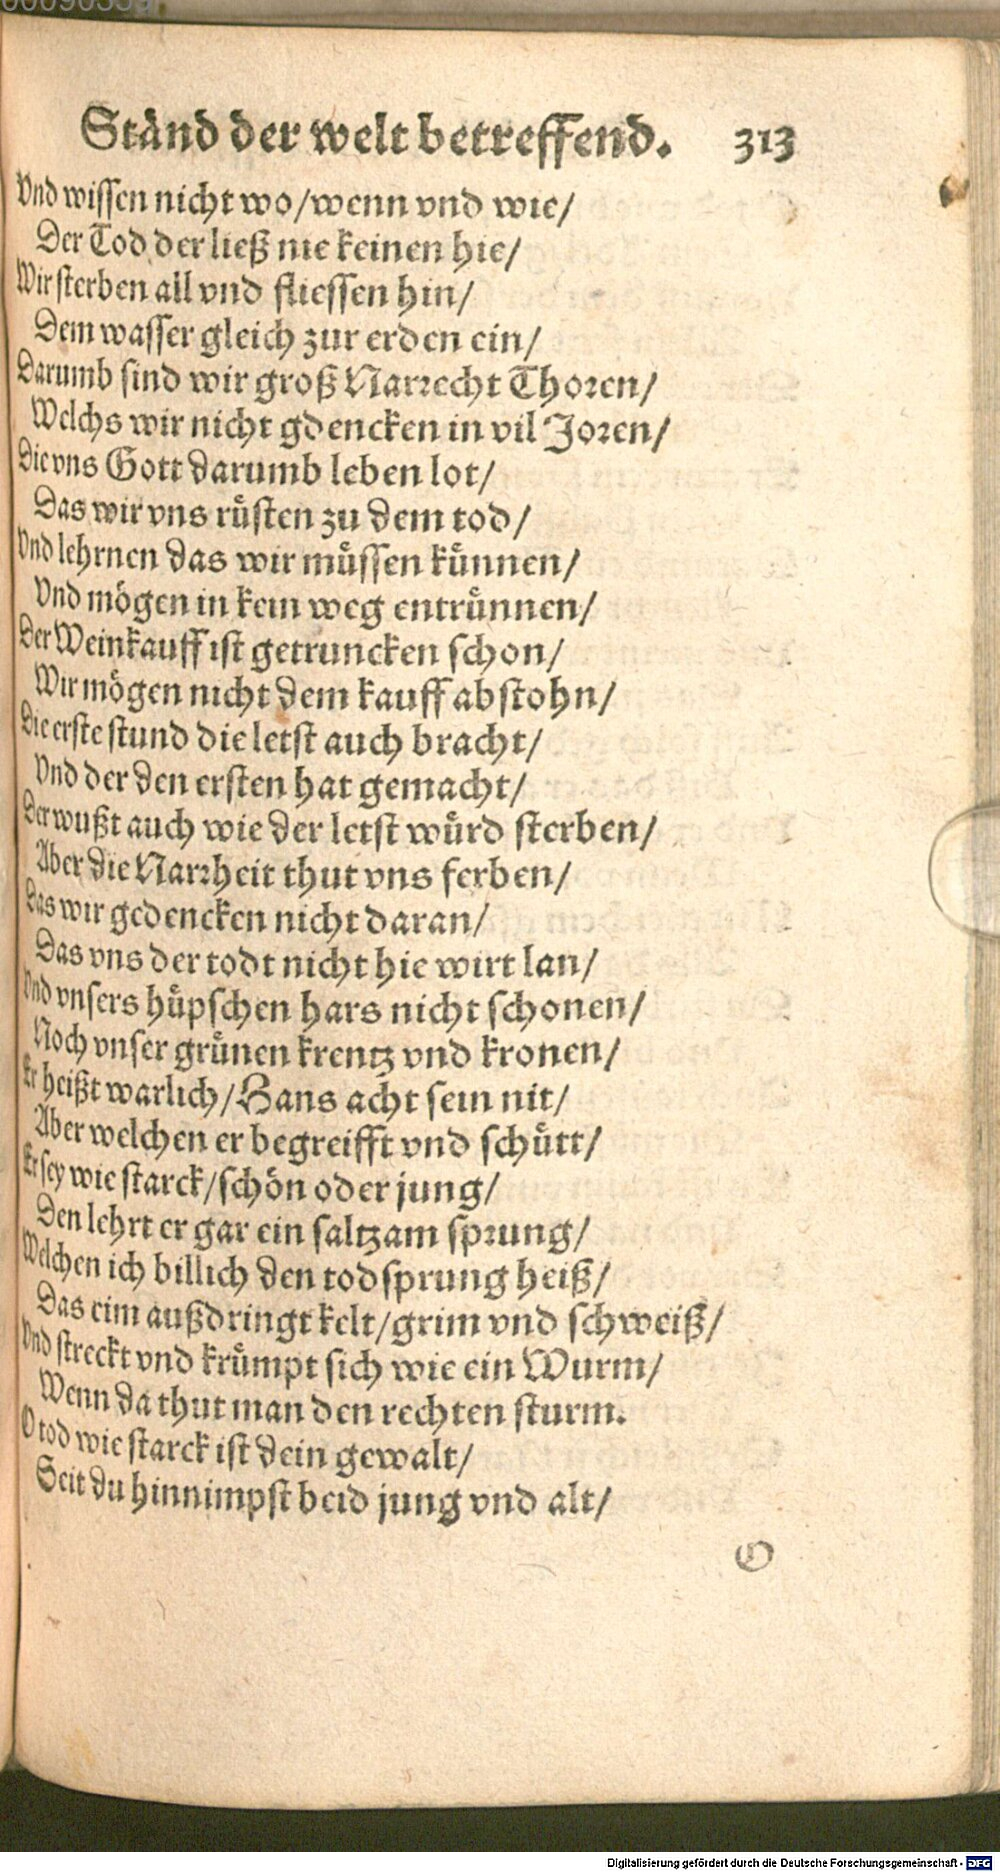 Ständ der welt betreffend. 313
Vnd wissen nicht wo/wenn vnd wie/
Der Tod der ließ nie keinen hie/
Wir sterben all vnd fliessen hin/
Dem wasser gleich zur erden ein/
Darumb sind wir groß Narrecht Thoren/
Welchs wir nicht gdencken in vil Joren/
Die vns Gott darumb leben lot/
Das wir vns rüsten zu dem tod/
Vnd lehrnen das wir müssen künnen/
Vnd mögen in kein weg entrünnen/
Der Weinkauff ist getruncken schon/
Wir mögen nicht dem kauff abstohn/
Die erste stund die letst auch bracht/
Vnd der den ersten hat gemacht/
Der wußt auch wie der letst würd sterben/
Aber die Narrheit thut vns ferben/
Das wir gedencken nicht daran/
Das vns der todt nicht hie wirt lan/
Vnd vnsers hüpschen hars nicht schonen/
Noch vnser grünen krentz vnd kronen/
Er heißt warlich/Hans acht sein nit/
Aber welchen er begreifft vnd schütt/
Er sey wie starck/schön oder jung/
Den lehrt er gar ein saltzam sprung/
Welchen ich billich den todsprung heiß/
Das eim außdringt kelt/grim vnd schweiß/
Vnd streckt vnd krümpt sich wie ein Wurm/
Wenn da thut man den rechten sturm.
O tod wie starck ist dein gewalt/
Seit du hinnimpst beid jung vnd alt/
O
Digitalisierung gefördert durch die Deutsche Forschungsgemeinschaft - DFG